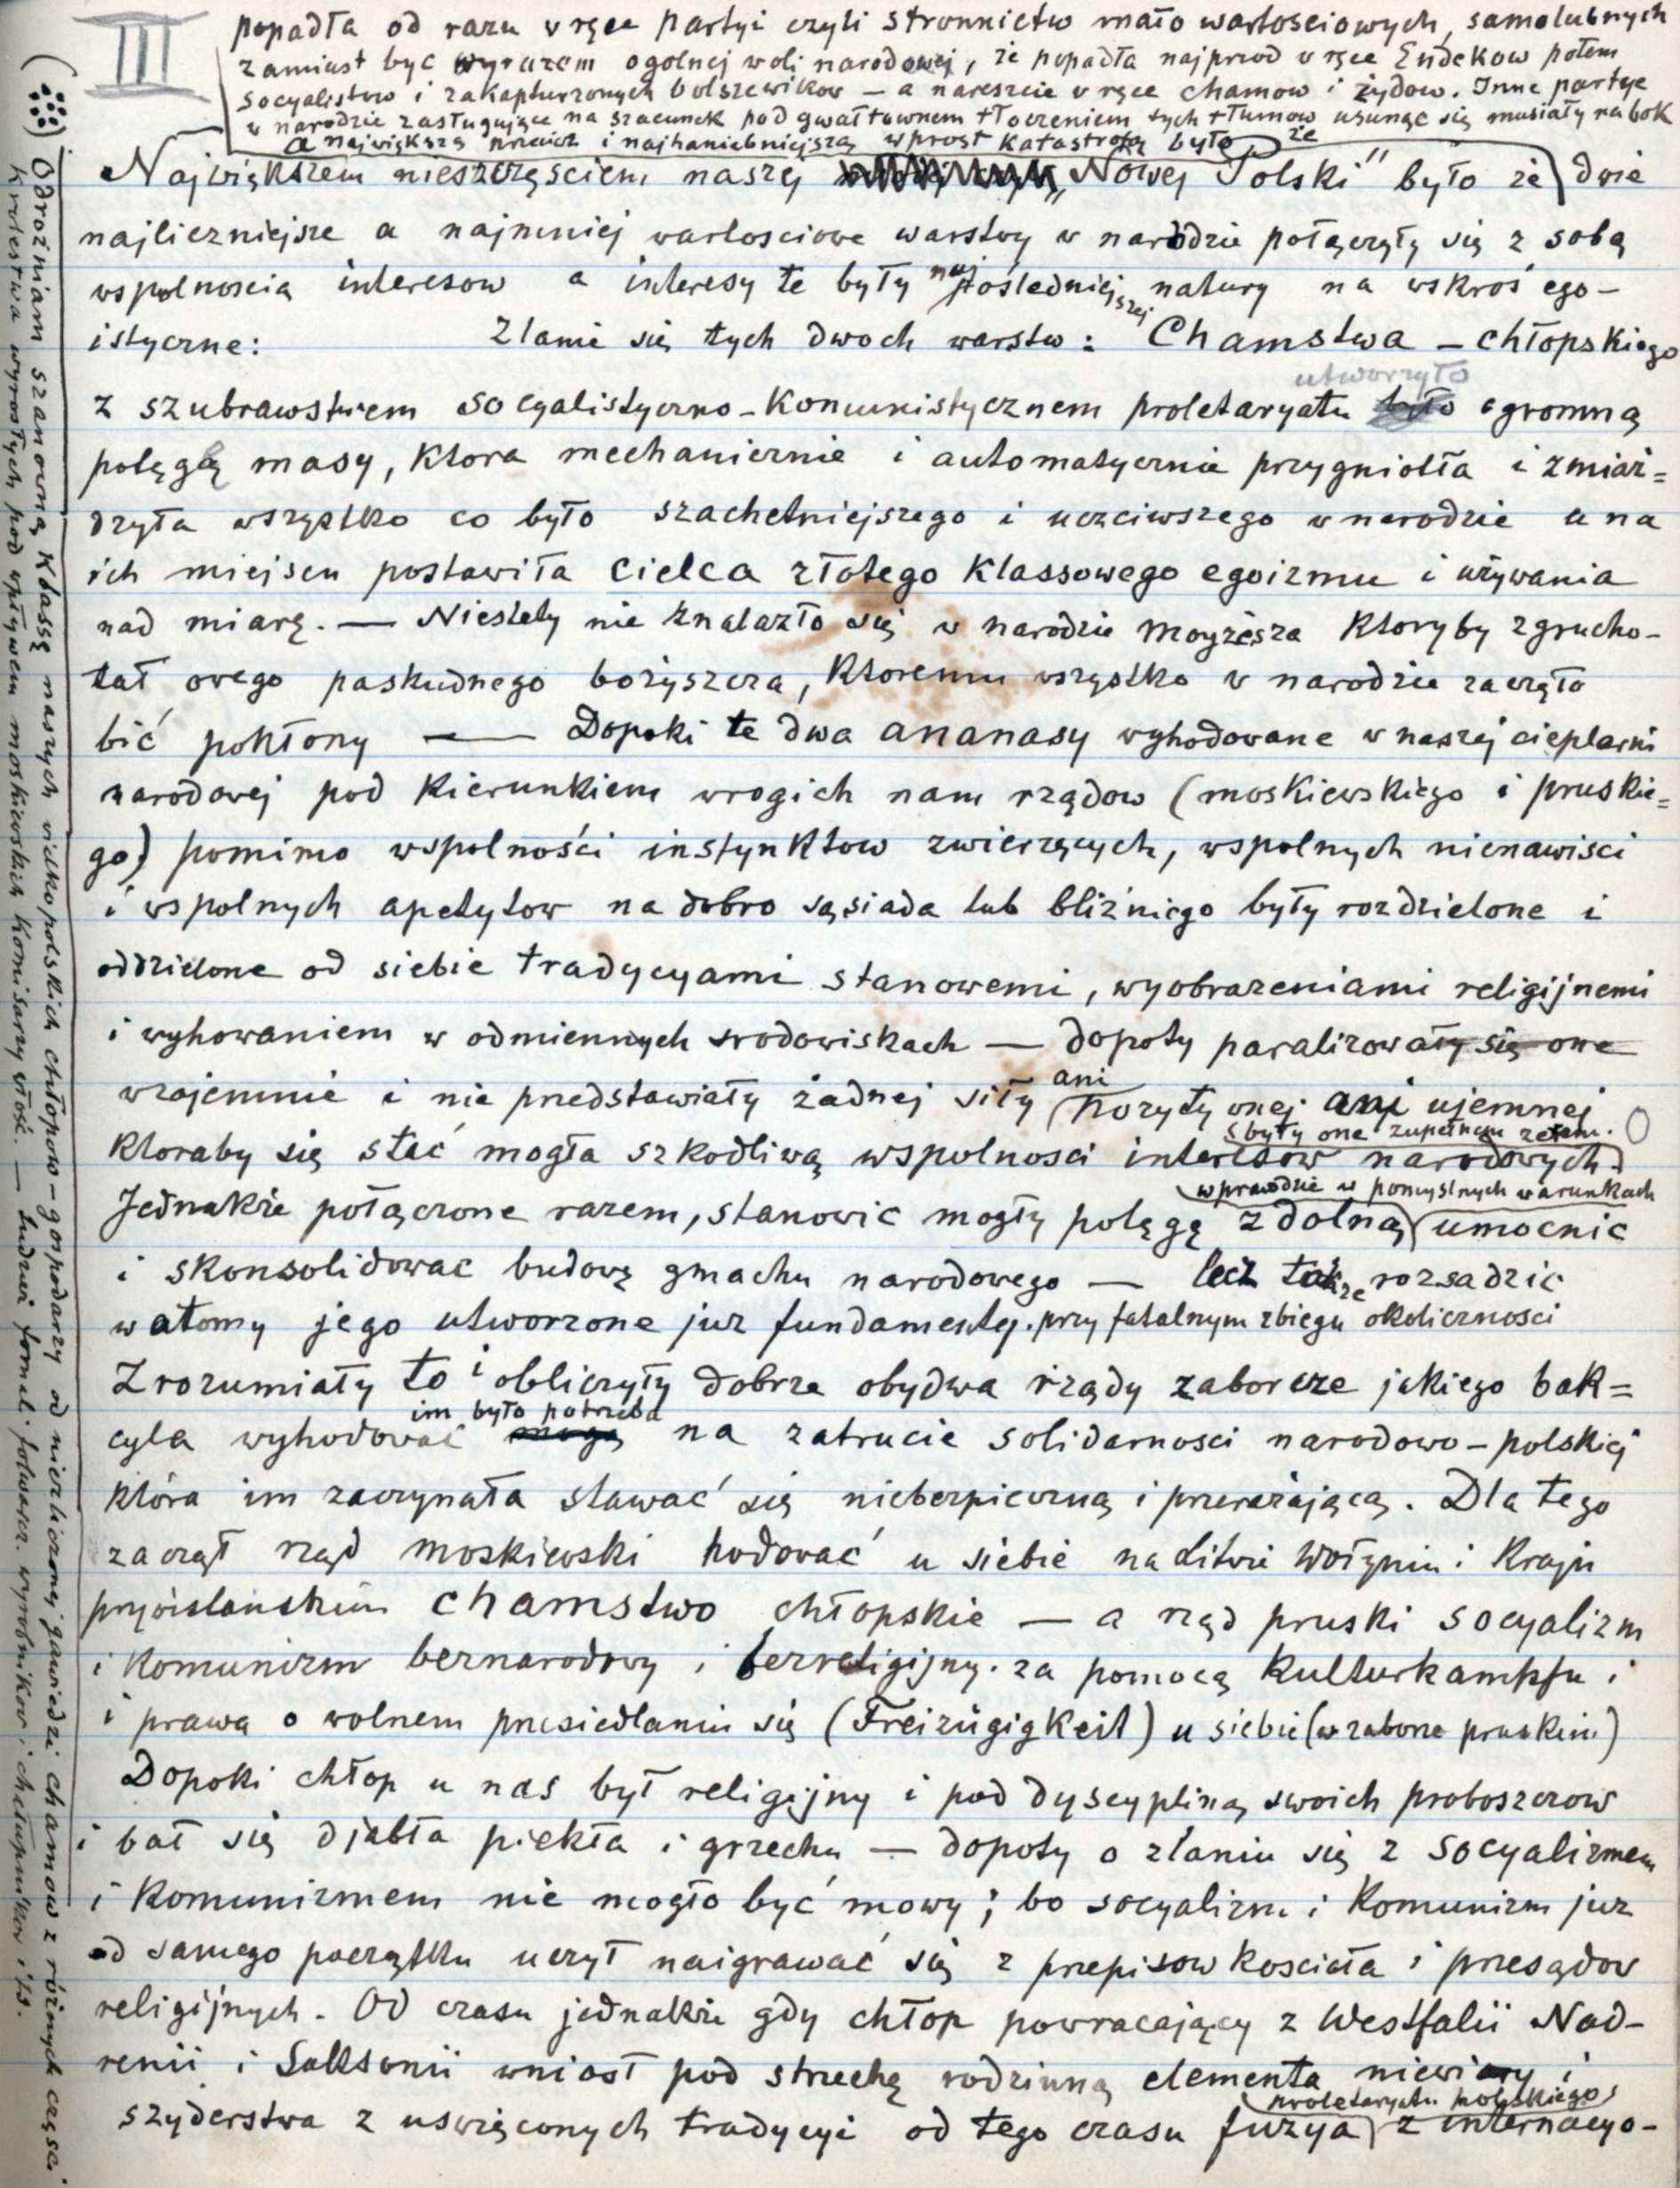 III
popadła od razu w ręce Partyi czyli stronnictw mało wartosciowych, samolubnych
zamiast byc wyrazem ogolnej woli narodowej, że popadła najprzod w ręce Endekow potem
socyalistow i zakapturzonych bolszewikow — a nareszcie w ręce chamow i żydow. Inne partye
w narodzie zasługujące na szacunek pod gwałtownem tłoczeniem tych tłumow usunąc się musiały na bok
a największą przecież i najhaniebniejszą wprost katastrofą było że
Największem nieszczęsciem naszej „Nowej Polski" było że dwie
najliczniejsze a najmniej wartosciowe warstwy w narodzie połączyły się z sobą
wspolnoscią interesow a interesy te były najpośledniejszej natury na wskroś ego-
istyczne: Zlanie się tych dwoch warstw: Chamstwa — chłopskiego
z szubrawstwem socyalistyczno-komunistycznem proletaryatu utworzyło ogromną
potęgę masy, ktora mechanicznie i automatycznie przygniotła i zmiaż=
dżyła wszystko co było szachetniejszego i uczciwszego w narodzie a na
ich miejscu postawiła cielca złotego klassowego egoizmu i używania
nad miarę. — Niestety nie znalazło się w narodzie Moyżesza ktoryby zgrucho-
tał owego paskudnego bożyszcza, ktoremu wszystko w narodzie zaczęło
bić pokłony — Dopoki te dwa ananasy wyhodowane w naszej cieplarni
narodowej pod kierunkiem wrogich nam rządow (moskiewskiego i pruskie=
go) pomimo wspolności instynktow zwierzęcych, wspolnych nienawisci
i wspolnych apetytow na dobro sąsiada lub bliźniego były rozdzielone i
oddzielone od siebie tradycyami stanowemi, wyobrazeniami religijnemi
i wyhowaniem w odmiennych srodowiskach — dopoty paralizowały się one
wzajemnie i nie przedstawiały żadnej siły ani pozytywnej ani ujemnej
były one zupełnem zerem. 0
ktoraby się stać mogła szkodliwą wspolnosci interesow narodowych.
Jednakże połączone razem, stanowic mogły potęgę zdolną wprawdzie w pomyslnych warunkach umocnic
i skonsolidowac budowę gmachu narodowego — lecz także rozsadzic
w atomy jego utworzone juz fundamenty. przy fatalnym zbiegu okolicznosci
Zrozumiały to i obliczyły dobrze obydwa rządy zaborcze jakiego bak=
cyla wyhodować im było potrzeba na zatrucie solidarnosci narodowo-polskiej
która im zaczynała stawać się niebezpieczną i przerażającą. Dla tego
zacząt rząd moskiewski hodować u siebie na Litwie Wołyniu i Kraju
prziwislanskim chamstwo chłopskie — a rząd pruski socyalizm
i Komunizm beznarodowy i bezreligijny. za pomocą Kulturkampfu i
i prawa o wolnem przesiedlaniu się (Freizügigkeit) u siebie (w zaborze pruskim)
Dopoki chłop u nas był religijny i pod dyscypliną swoich proboszczow
i bał się djabła piekła i grzechu — dopoty o zlaniu się z socyalizmem
i Komunizmem nie mogło być mowy; bo socyalizm i Komunizm juz
od samego początku uczył naigrawać się z przepisow koscioła i przesądow
religijnych. Od czasu jednakże gdy chłop powracający z Westfalii Nad-
renii i Saksonii wniosł pod strzechę rodzinną elementa niewiary i
szyderstwa z uswięconych tradycyi od tego czasu fuzya proletaryatu polskiego z internacyo-
Odrożniam szanowną Klassę naszych wielkopolskich chłopow-gospodarzy od niezliczonej gawiedzi chamow z różnych częsci
Krolestwa wyrosłych pod wpływem moskiewskich Komisarzy włość. — tudzież fornal. folwarcz. wyrobnikow i chałupnikow itd.